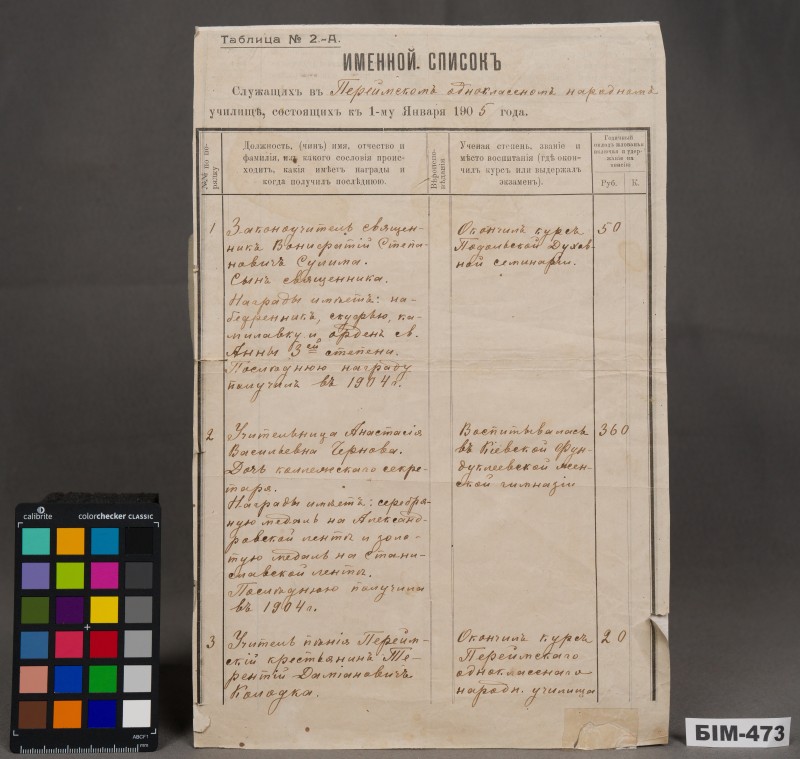 Таблица № 2.-А.
ИМЕННОЙ. СПИСОКЪ
Служащихъ въ Переймскомъ одноклассномъ народномъ
училищѣ, состоящихъ къ 1-му Января 1905 года.
№№ по по-
рядку
Должность, (чинъ) имя, отчество и
фамилія, изъ какого сословія проис-
ходитъ, какія имѣетъ награды и
когда получилъ послѣднюю.
Вѣроиспо-
вѣданія
Ученая степень, званіе и
мѣсто воспитанія (гдѣ окон-
чилъ курсъ или выдержалъ
экзаменъ).
Годичный
окладъ жалованья
включая и удер-
жанія на
пенсію
Руб. К.
1
Законоучитель священ-
никъ Вонифатій Степа-
новичъ Сулима.
Сынъ священника.
Награды имѣетъ: на-
бедренникъ, скуфью, ка-
милавку и орденъ св.
Анны 3ей степени.
Послѣднюю награду
получилъ въ 1904 г.
Окончилъ курсъ
Подольской Духов-
ной семинаріи.
50
2
Учительница Анастасія
Васильевна Чернова.
Дочь коллежскаго секре-
таря.
Награды имѣетъ: серебря-
ную медаль на Александ-
ровской ленты и золо-
тую медаль на Стани-
славской ленты.
Послѣднюю получила
въ 1904 г.
Воспитывалась
въ Кіевской Фун-
дуклеевской жен-
ской гимназіи
360
3
Учитель пѣнія Перейм-
скій крестьянинъ Те-
рентій Даміановичъ
Колодка.
Окончилъ курсъ
Переймскаго
одноклассного
народн. училища
20
calibrite
colorchecker CLASSIC
ABCF1
mm
БІМ-473